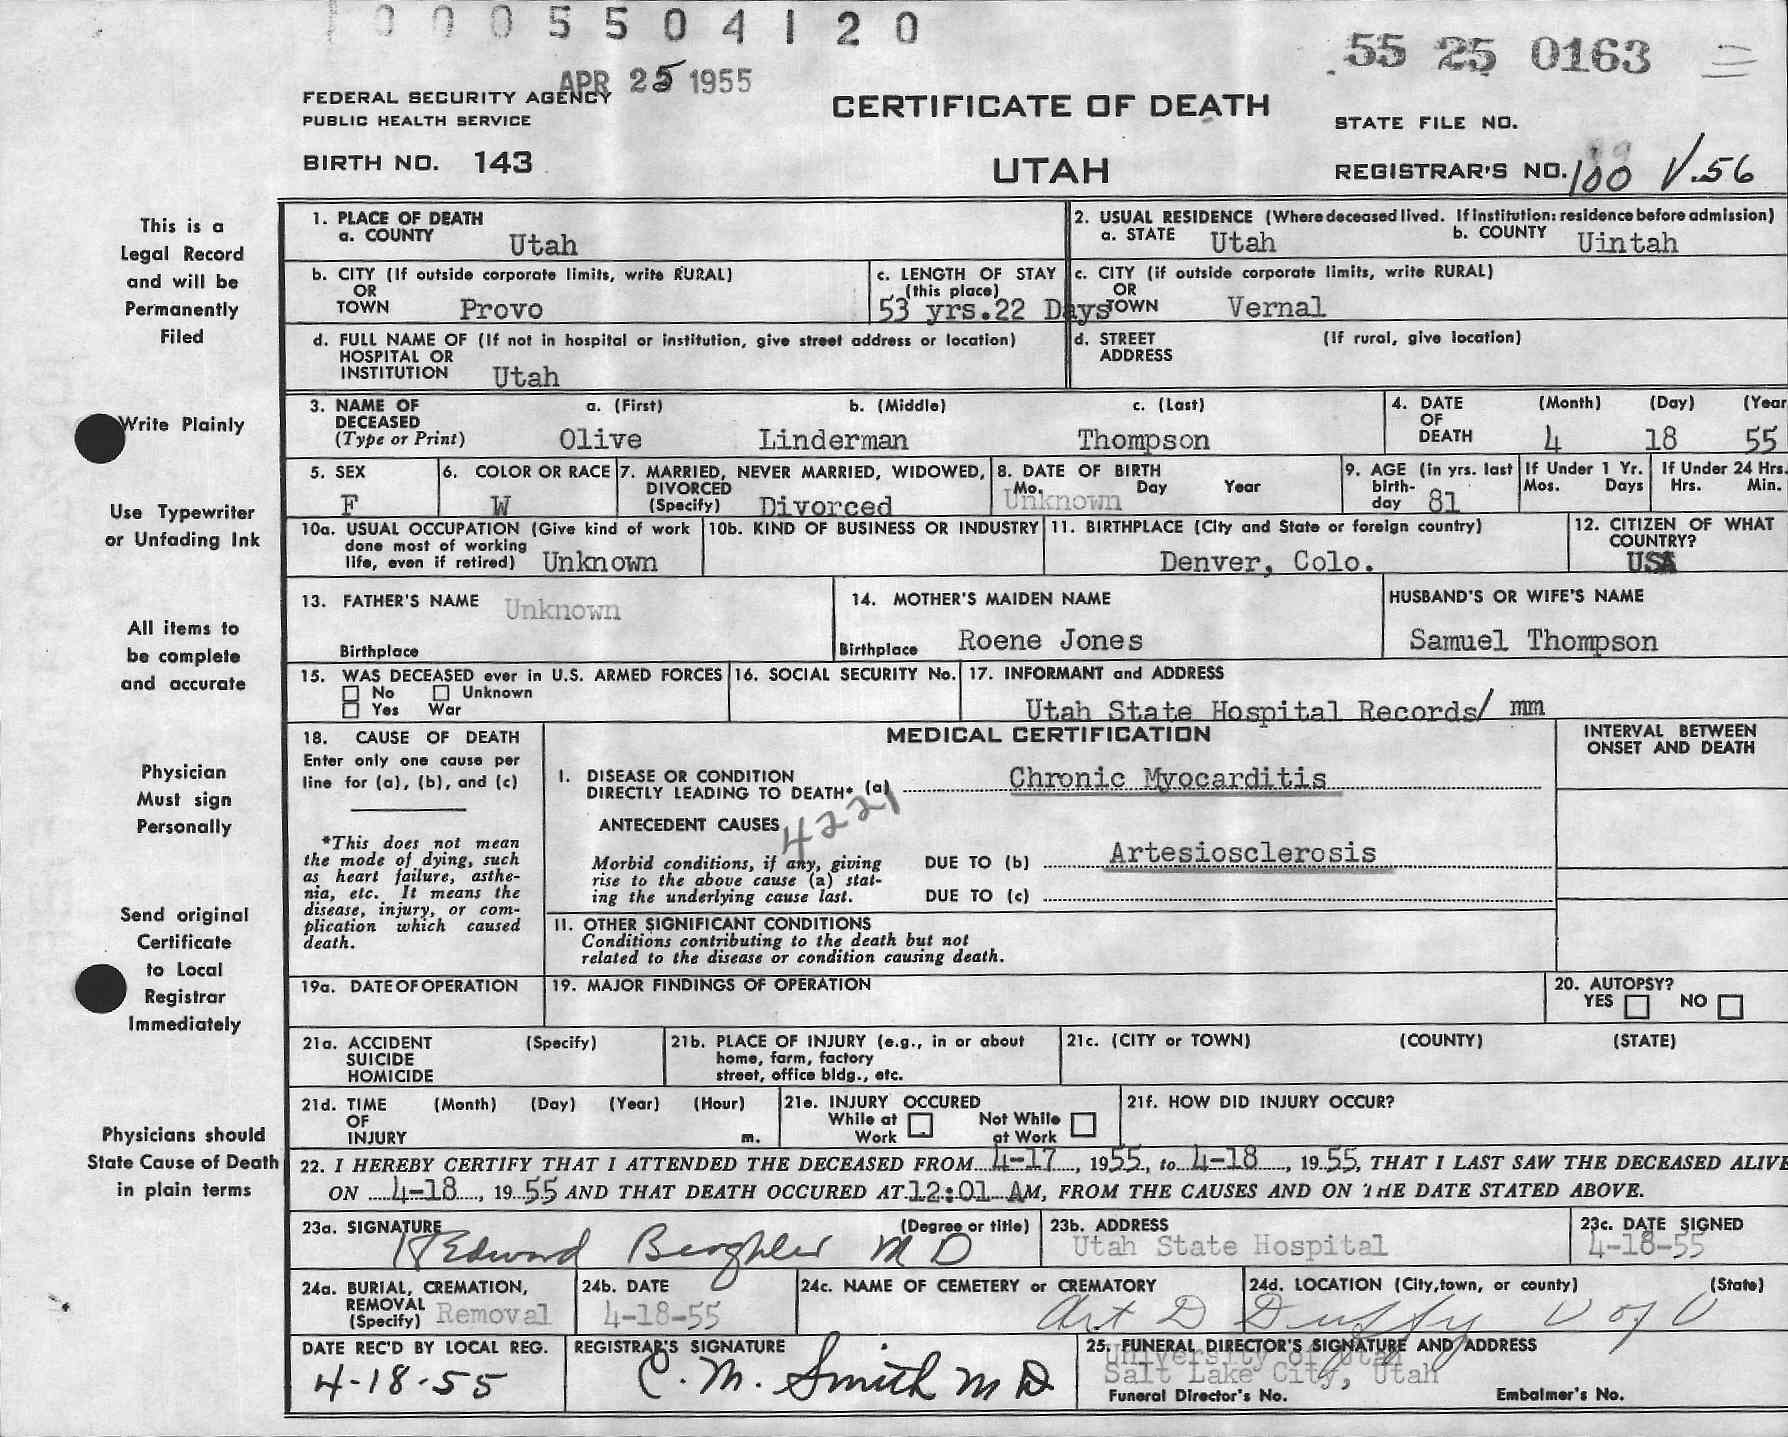 1 0 0 0 5 5 0 4 1 2 0
55 25 0163
APR 25 1955
FEDERAL SECURITY AGENCY
PUBLIC HEALTH SERVICE
CERTIFICATE OF DEATH
STATE FILE NO.
BIRTH NO. 143
UTAH
REGISTRAR'S NO. 100 V.56
This is a
Legal Record
and will be
Permanently
Filed
Write Plainly
Use Typewriter
or Unfading Ink
All items to
be complete
and accurate
Physician
Must sign
Personally
Send original
Certificate
to Local
Registrar
Immediately
Physicians should
State Cause of Death
in plain terms
1. PLACE OF DEATH
a. COUNTY Utah
2. USUAL RESIDENCE (Where deceased lived. If institution: residence before admission)
a. STATE Utah b. COUNTY Uintah
b. CITY (If outside corporate limits, write RURAL)
OR
TOWN Provo
c. LENGTH OF STAY
(this place)
53 yrs.22 Days
c. CITY (if outside corporate limits, write RURAL)
OR
TOWN Vernal
d. FULL NAME OF (If not in hospital or institution, give street address or location)
HOSPITAL OR
INSTITUTION Utah
d. STREET (If rural, give location)
ADDRESS
3. NAME OF a. (First) b. (Middle) c. (Last)
DECEASED
(Type or Print) Olive Linderman Thompson
4. DATE (Month) (Day) (Year
OF
DEATH 4 18 55
5. SEX
F
6. COLOR OR RACE
W
7. MARRIED, NEVER MARRIED, WIDOWED,
DIVORCED
(Specify) Divorced
8. DATE OF BIRTH
Mo. Day Year
Unknown
9. AGE (in yrs. last
birth-
day 81
If Under 1 Yr.
Mos. Days
If Under 24 Hrs.
Hrs. Min.
10a. USUAL OCCUPATION (Give kind of work
done most of working
life, even if retired) Unknown
10b. KIND OF BUSINESS OR INDUSTRY
11. BIRTHPLACE (City and State or foreign country)
Denver, Colo.
12. CITIZEN OF WHAT
COUNTRY?
USA
13. FATHER'S NAME Unknown
Birthplace
14. MOTHER'S MAIDEN NAME
Birthplace Roene Jones
HUSBAND'S OR WIFE'S NAME
Samuel Thompson
15. WAS DECEASED ever in U.S. ARMED FORCES
No Unknown
Yes War
16. SOCIAL SECURITY No.
17. INFORMANT and ADDRESS
Utah State Hospital Records/ mm
18. CAUSE OF DEATH
Enter only one cause per
line for (a), (b), and (c)
*This does not mean
the mode of dying, such
as heart failure, asthe-
nia, etc. It means the
disease, injury, or com-
plication which caused
death.
MEDICAL CERTIFICATION
INTERVAL BETWEEN
ONSET AND DEATH
I. DISEASE OR CONDITION
DIRECTLY LEADING TO DEATH* (a) Chronic Myocarditis
4221
ANTECEDENT CAUSES
Morbid conditions, if any, giving
rise to the above cause (a) stat-
ing the underlying cause last.
DUE TO (b) Artesiosclerosis
DUE TO (c)
II. OTHER SIGNIFICANT CONDITIONS
Conditions contributing to the death but not
related to the disease or condition causing death.
19a. DATE OF OPERATION
19. MAJOR FINDINGS OF OPERATION
20. AUTOPSY?
YES NO
21a. ACCIDENT (Specify)
SUICIDE
HOMICIDE
21b. PLACE OF INJURY (e.g., in or about
home, farm, factory
street, office bldg., etc.
21c. (CITY or TOWN) (COUNTY) (STATE)
21d. TIME (Month) (Day) (Year) (Hour)
OF
INJURY m.
21e. INJURY OCCURED
While at Not While
Work at Work
21f. HOW DID INJURY OCCUR?
22. I HEREBY CERTIFY THAT I ATTENDED THE DECEASED FROM 4-17, 1955, to 4-18, 1955, THAT I LAST SAW THE DECEASED ALIVE
ON 4-18, 1955 AND THAT DEATH OCCURED AT 12:01 AM, FROM THE CAUSES AND ON THE DATE STATED ABOVE.
23a. SIGNATURE (Degree or title)
Edward Beoghler M D
23b. ADDRESS
Utah State Hospital
23c. DATE SIGNED
4-18-55
24a. BURIAL, CREMATION,
REMOVAL
(Specify) Removal
24b. DATE
4-18-55
24c. NAME OF CEMETERY or CREMATORY
24d. LOCATION (City,town, or county) (State)
Art D Duffy U of U
DATE REC'D BY LOCAL REG.
4-18-55
REGISTRAR'S SIGNATURE
C. M. Smith M D
25. FUNERAL DIRECTOR'S SIGNATURE AND ADDRESS
University of Utah
Salt Lake City, Utah
Funeral Director's No. Embalmer's No.